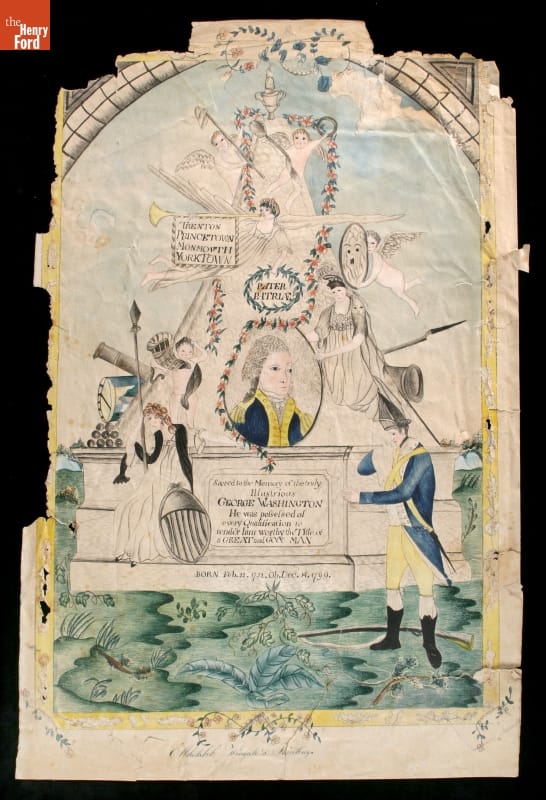 the
Henry
Ford
TRENTON
PRINCETOWN
MONMOUTH
YORKTOWN
PATER
PATRIÆ
Sacred to the Memory of the truly
Illustrious
GEORGE WASHINGTON
He was possessed of
every Qualification to
render him worthy the Title of
a GREAT and GOOD MAN
BORN Feb. 22. 1732. Ob. Dec. 14. 1799.
Painting